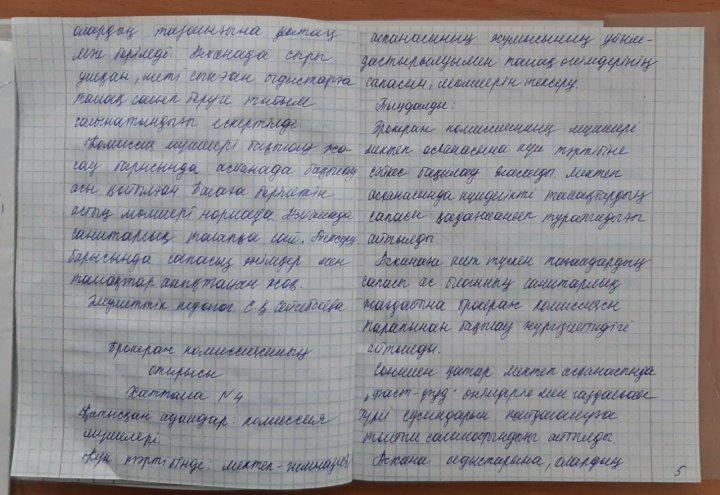 олардың тазалығына қатаң
мән берілді. Асханада сыры
ұшқан, шеті сынған ыдыстарға
тамақ салып беруге тыйым
салынатындығы ескертілді
Комиссия мүшелері бақылау жа-
сау барысында асханада бақылау
асы қойылған. Балаға берілетін
астың мөлшері нормада. Асханада
санитарлық талапқа сай. Тексеру
барысында сапасыз жемдер мен
тамақтар анықталған жоқ.
Әлеуметтік педагог С Қ
Бракераж комиссиясының
отырысы
Хаттама №4
Қатысқан адамдар: комиссия
мүшелері.
Күн тәртібінде: мектеп-гимназия
асханасының жұмысының ұйым-
дастырылуымен тамақ өнімдерінің
сапасын, мөлшерін тексеру.
Тыңдалды:
Бракераж комиссиясының мүшелері
мектеп асханасына күн тәртібіне
сәйкес бақылау жасады. Мектеп
асханасында күнделікті тамақтардың
сапасы қадағаланып тұратындығы
айтылды.
Асханаға келіп түскен тағамдардың
сапасы ас блогының санитарлық
жағдайына бракераж комиссиясы
тарапынан бақылау жүргізілетіндігі
айтылды.
Сонымен қатар мектеп асханасында
„фаст-фуд" өнімдерін мен газдалған
түрлі сусындарын пайдалануға
тыйым салынатындығы айтылды.
Асхана ыдыстарына, олардың
5